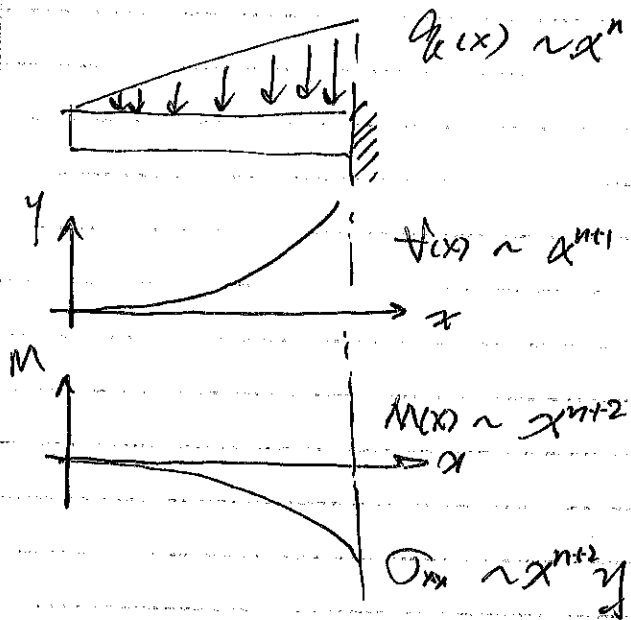 q(x) ~ x^n
y
V(x) ~ x^{n+1}
x
M
M(x) ~ x^{n+2}
x
σ_xx ~ x^{n+2} y